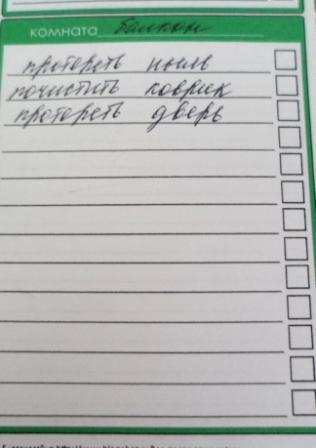 комната балкон
протереть пыль
почистить коврик
протереть дверь